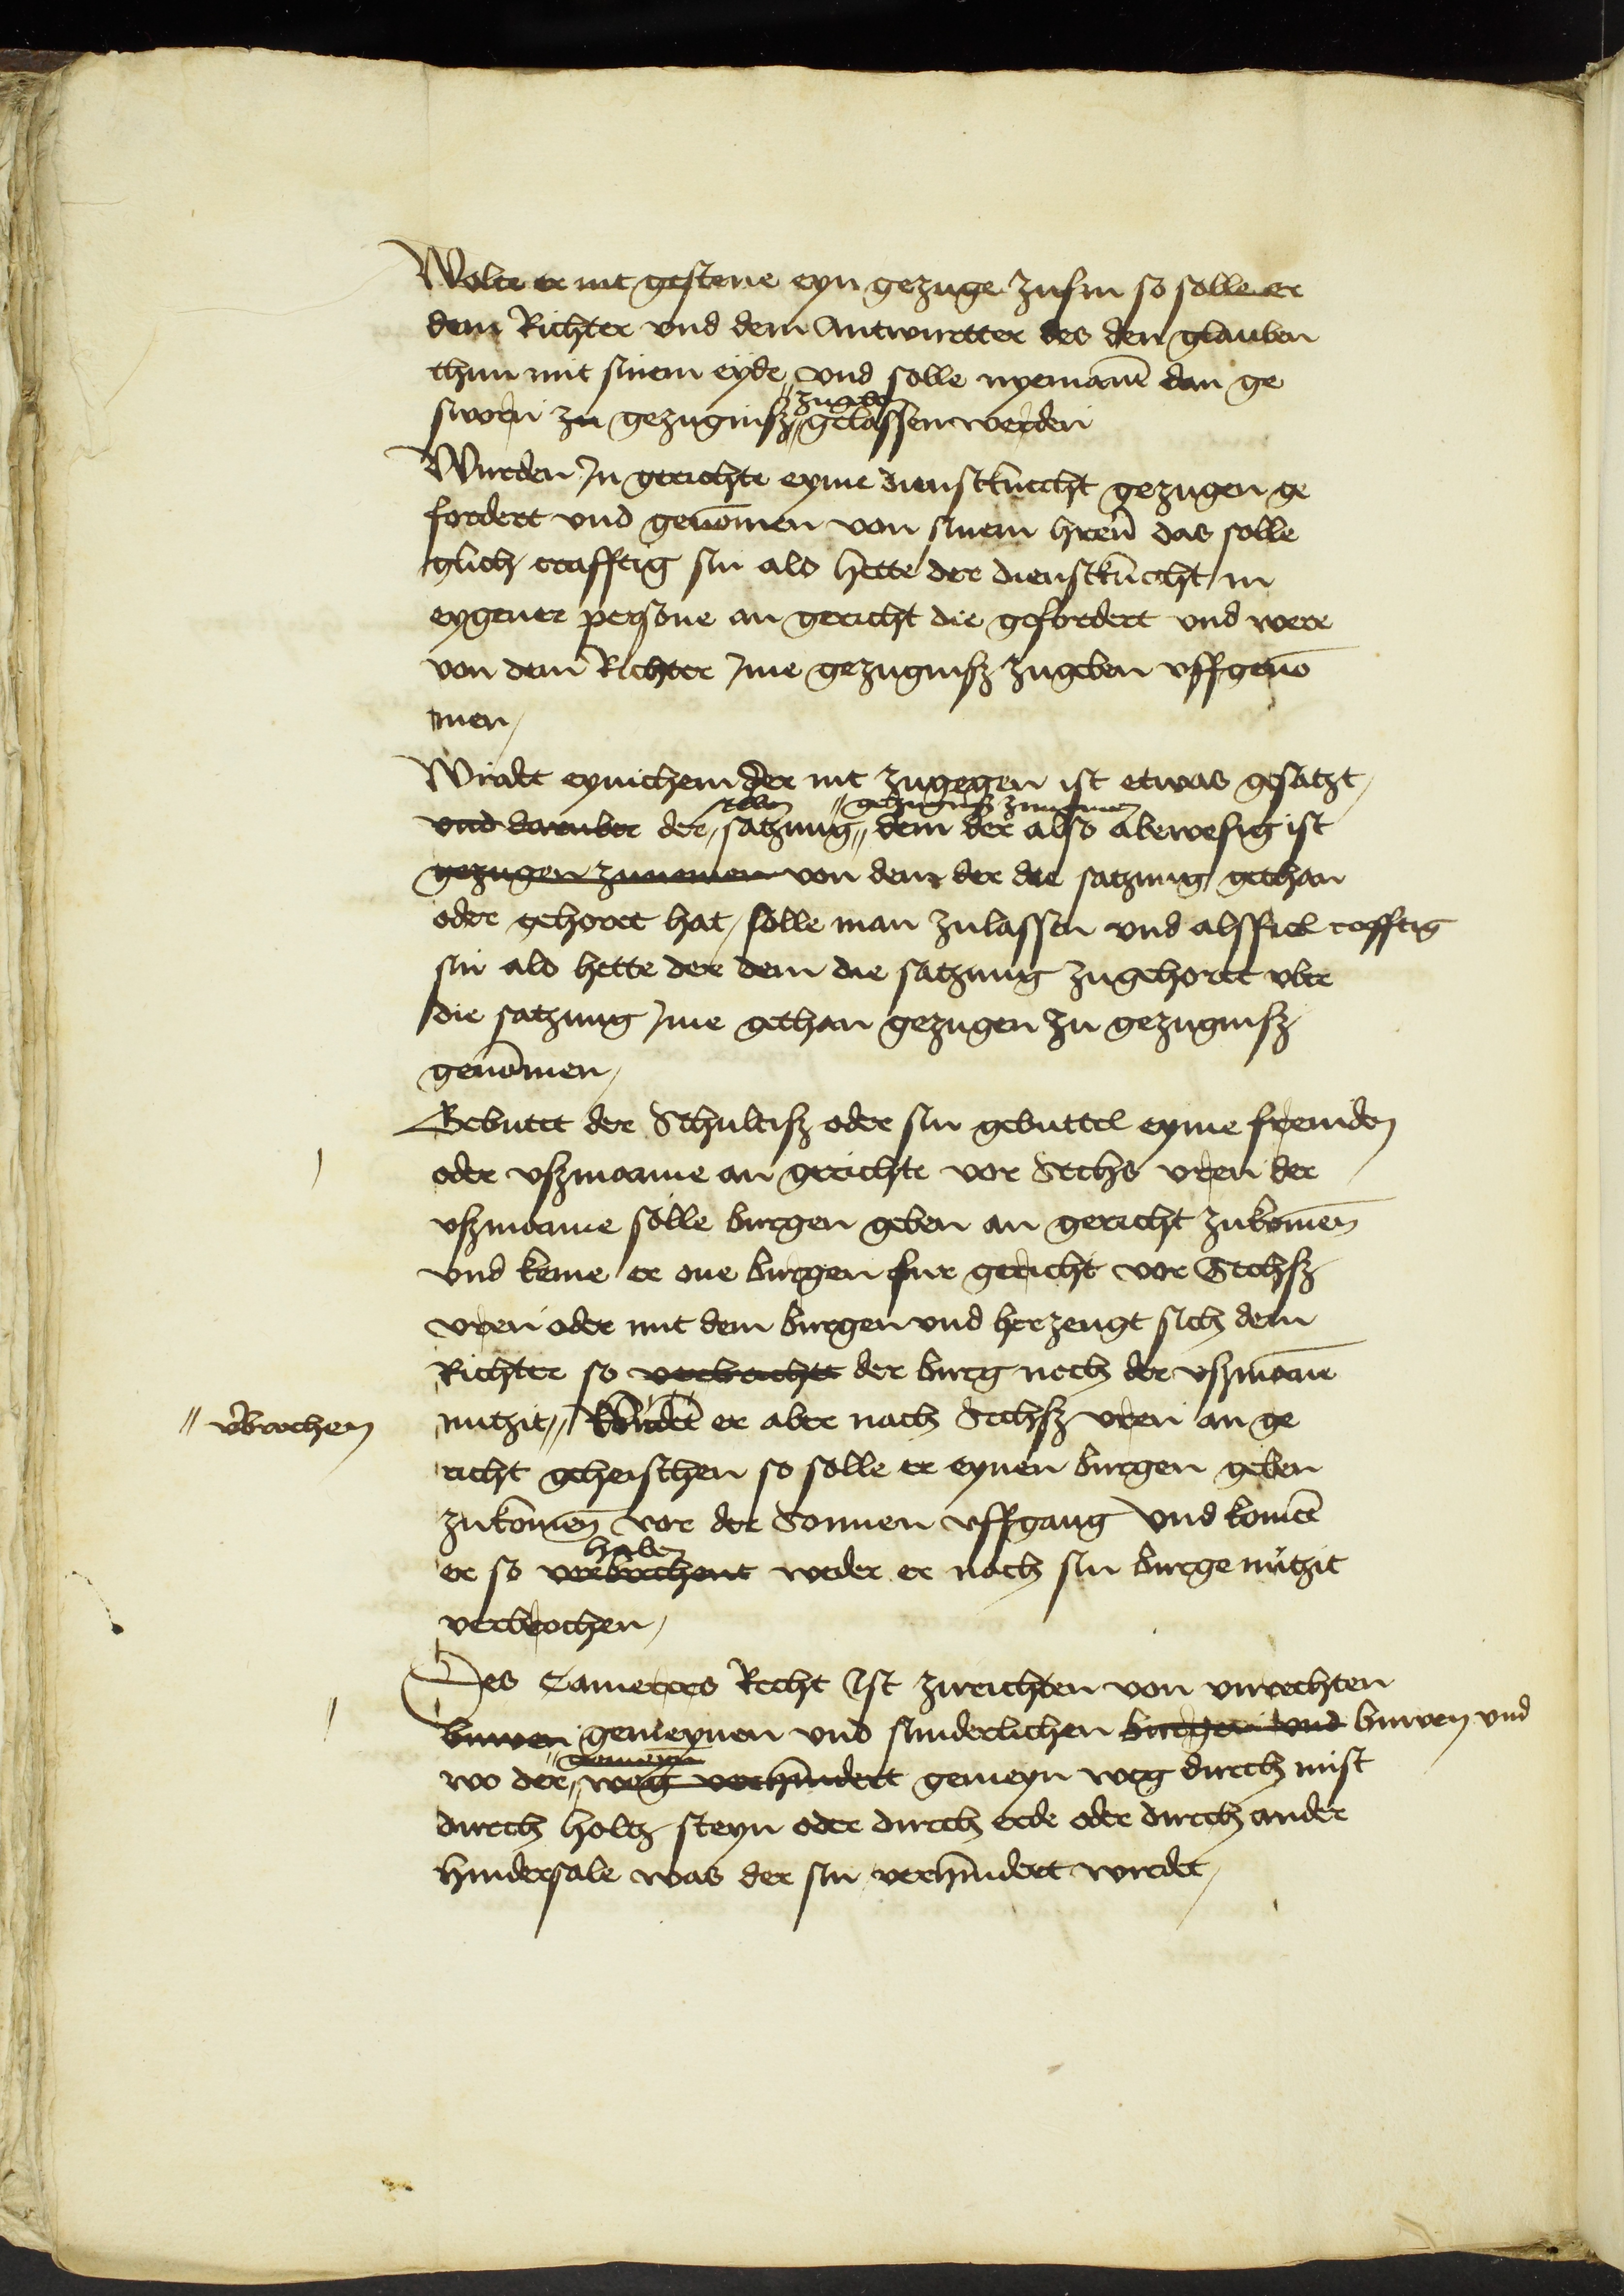 Wolte er nit gestene eyn gezuge zusin so solle er
dem Richter vnd dem Antwurtter des den glauben
thun mit sinem eyde vnd solle nyemane dan ge
zugeben
sworn zu gezugnisz gelassen werden
Wurden In gerichte eyme dienstknecht gezugen ge
fordert vnd genomen von sinem hren das solle
glich crafftig sin als hette der dienstknecht in
eygener persone an gericht die gefordert vnd were
von dem Richter Ime gezugnisz zugeben vffgeno
men
Wirdet eynichem der nit zugegen ist etwas gesatzt
selben gezugnisz zunemen
vnd daruber der satzung dem der also abewesig ist
gezugen zunemen von dem der die satzung gethan
oder gehoret hat solle man zulassen vnd alsfiel crefftig
sin als hette der dem die satzung zugehoret vber
die satzung Ime gethan gezugen zu gezugnisz
genomen
Gebutet der Schultisz oder sin gebuttel eyme fremden
oder vszmanne an gerichte vor Sechs vren der
vszmanne solle burgen geben an gericht zukomen
vnd keme er one burgen fur gericht vor Sechsz
vren oder mit dem burgen vnd herzeugt sich dem
Richter so verbrichet der burg noch der vszmane
v'brochen
nutzit wurde er aber nach Sechsz vren an ge
richt geheischen so solle er eynen burgen geben
zukomen vor der Sonnen vffgang vnd komet
haben
er so verbrechent weder er noch sin burge nutzit
verbrochen
Des Camerers Recht Ist zurichten von vnrechten
buwen gemeynen vnd sunderlichen burgern vnd buwen vnd
gemeyn
wo der weg verhindert gemeyn weg durch mist
durch holtz steyn oder durch erde oder durch ander
hindersale was der sin verhindert wirdet